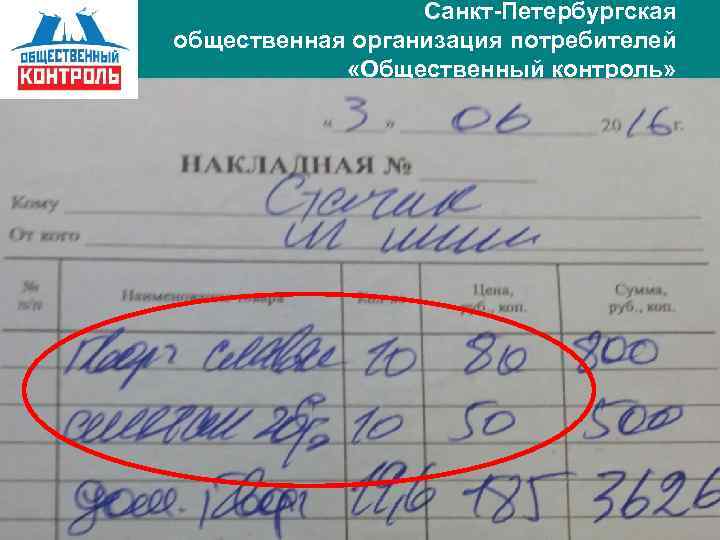 Санкт-Петербургская
общественная организация потребителей
«Общественный контроль»
ОБЩЕСТВЕННЫЙ
КОНТРОЛЬ
« 3 » 06 2016 г.
НАКЛАДНАЯ №
Кому Стачик
От кого
№ п/п Наименование товара Кол-во Цена, руб., коп. Сумма, руб., коп.
Творг славян 10 80 800
сметан 10 50 500
дом. Творг 19,6 185 3626